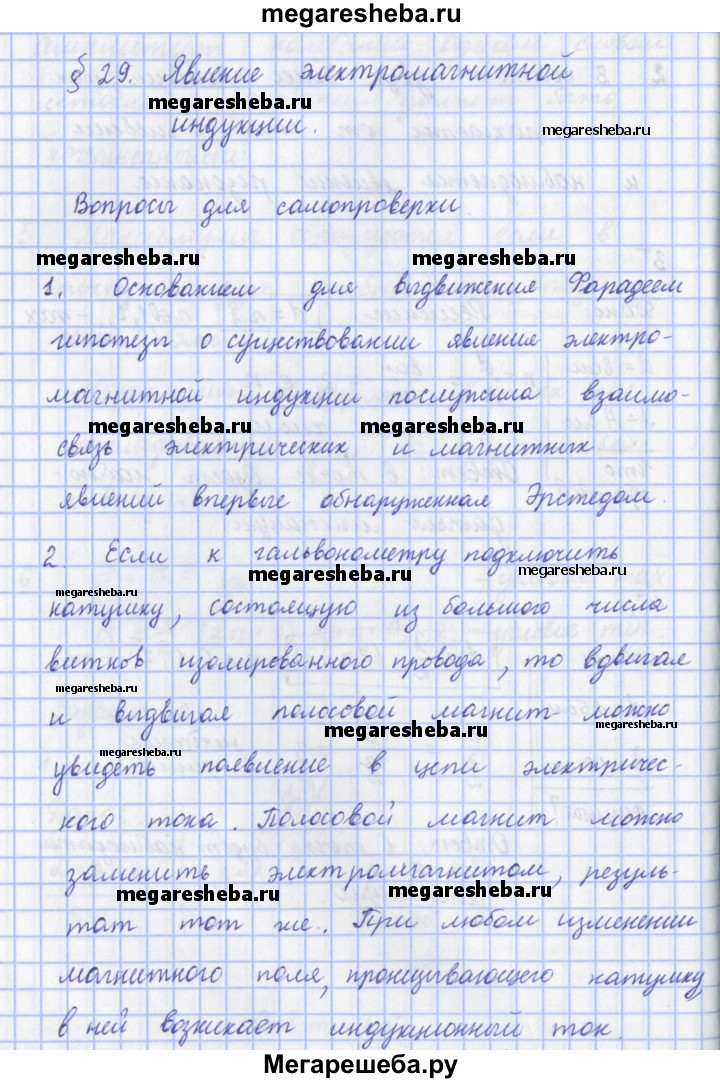 megaresheba.ru
§ 29. Явление электромагнитной
megaresheba.ru
индукции.
megaresheba.ru
Вопросы для самопроверки.
megaresheba.ru
megaresheba.ru
1. Основанием для выдвижения Фарадеем
гипотезы о существовании явления электро-
магнитной индукции послужила взаимо-
megaresheba.ru
megaresheba.ru
связь электрических и магнитных
явлений впервые обнаруженная Эрстедом.
2. Если к гальвонометру подключить
megaresheba.ru
megaresheba.ru
megaresheba.ru
катушку, состоящую из большого числа
витков изолированного провода, то вдвигая
megaresheba.ru
и выдвигая полосовой магнит можно
megaresheba.ru
megaresheba.ru
megaresheba.ru
увидеть появление в цепи электричес-
кого тока. Полосовой магнит можно
заменить электромагнитом, резуль-
megaresheba.ru
megaresheba.ru
тат тот же. При любом изменении
магнитного поля, пронизывающего катушку
в ней возникает индукционный ток.
Мегарешеба.ру